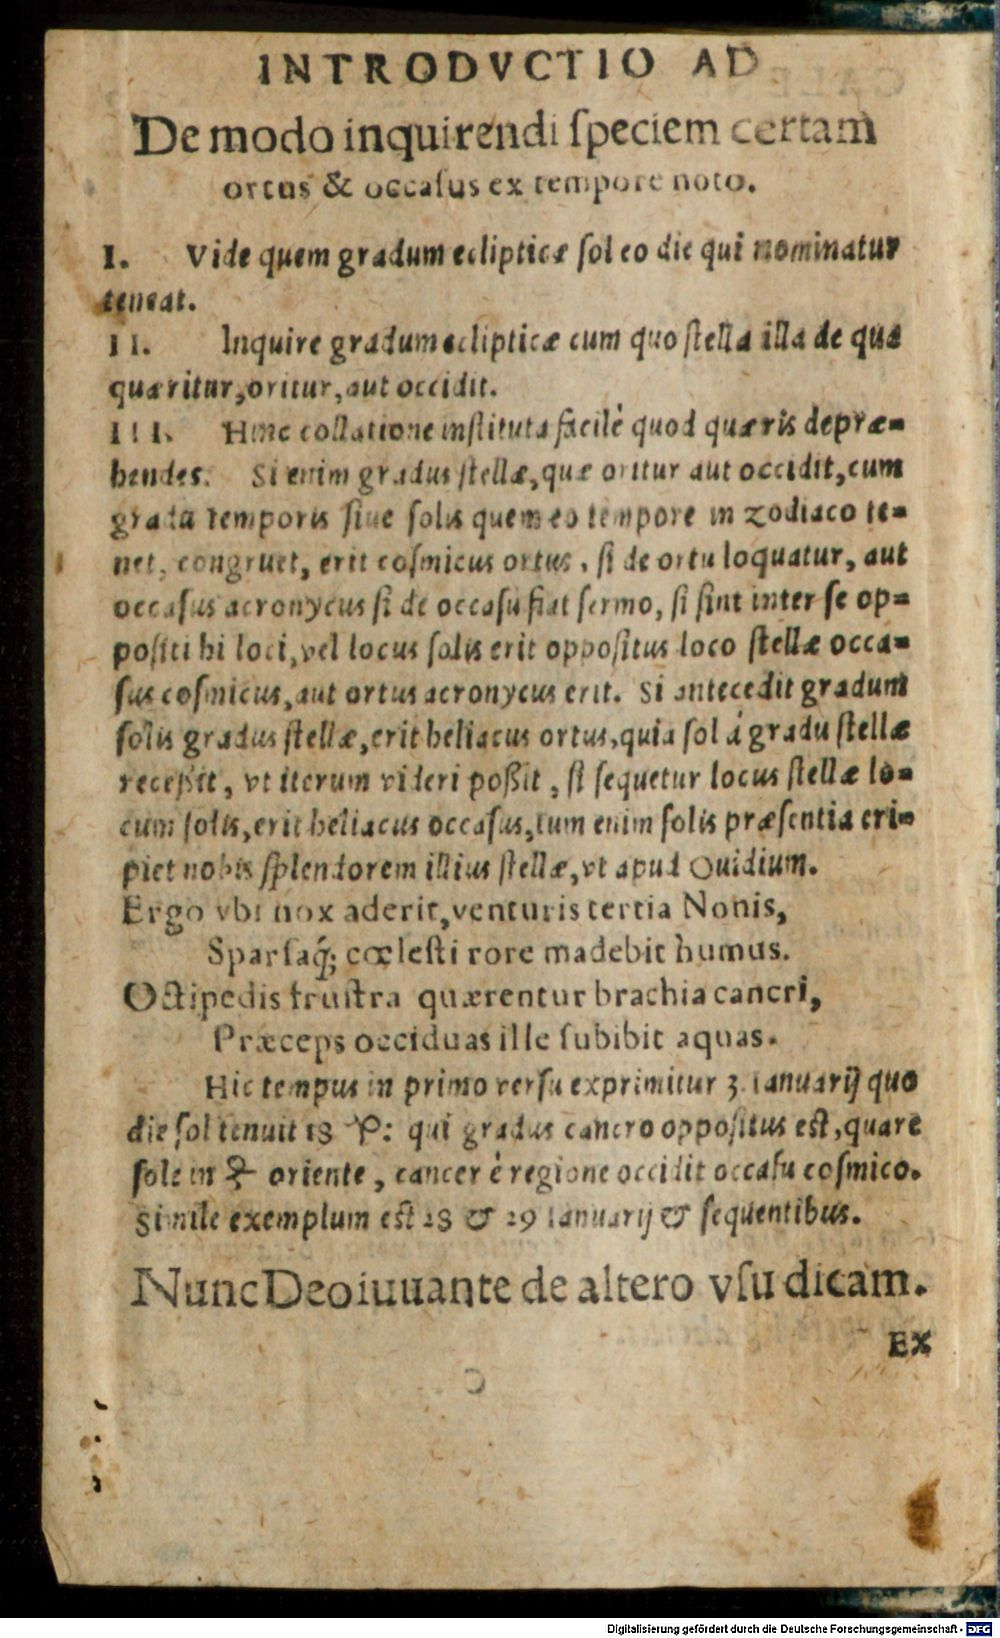 INTRODVCTIO AD
De modo inquirendi ſpeciem certam
ortus & occaſus ex tempore noto.
I. Vide quem gradum eclipticæ ſol eo die qui nominatur
teneat.
II. Inquire gradum eclipticæ cum quo ſtella illa de qua
quæritur, oritur, aut occidit.
III. Hinc collatione inſtituta facilè quod quæris depræ-
hendes. Si enim gradus ſtellæ, quæ oritur aut occidit, cum
gradu temporis ſiue ſolis quem eo tempore in zodiaco te-
net, congruet, erit coſmicus ortus, ſi de ortu loquatur, aut
occaſus acronycus ſi de occaſu fiat ſermo, ſi ſint inter ſe op-
poſiti hi loci, vel locus ſolis erit oppoſitus loco ſtellæ occa-
ſus coſmicus, aut ortus acronycus erit. Si antecedit gradum
ſolis gradus ſtellæ, erit heliacus ortus, quia ſol á gradu ſtellæ
receßit, vt iterum videri poßit, ſi ſequetur locus ſtellæ lo-
cum ſolis, erit heliacus occaſus, tum enim ſolis præſentia eri-
piet nobis ſplendorem illius ſtellæ, vt apud Ouidium.
Ergo vbi nox aderit, venturis tertia Nonis,
Sparſaq́; cœleſti rore madebit humus.
Octipedis fruſtra quærentur brachia cancri,
Præceps occiduas ille ſubibit aquas.
Hic tempus in primo verſu exprimitur 3. Ianuarij quo
die ſol tenuit 18 ♑: qui gradus cancro oppoſitus eſt, quare
ſole in ♑ oriente, cancer è regione occidit occaſu coſmico.
Simile exemplum eſt 28 & 29 Ianuarij & ſequentibus.
Nunc Deo iuuante de altero vſu dicam.
EX
Digitalisierung gefördert durch die Deutsche Forschungsgemeinschaft - DFG